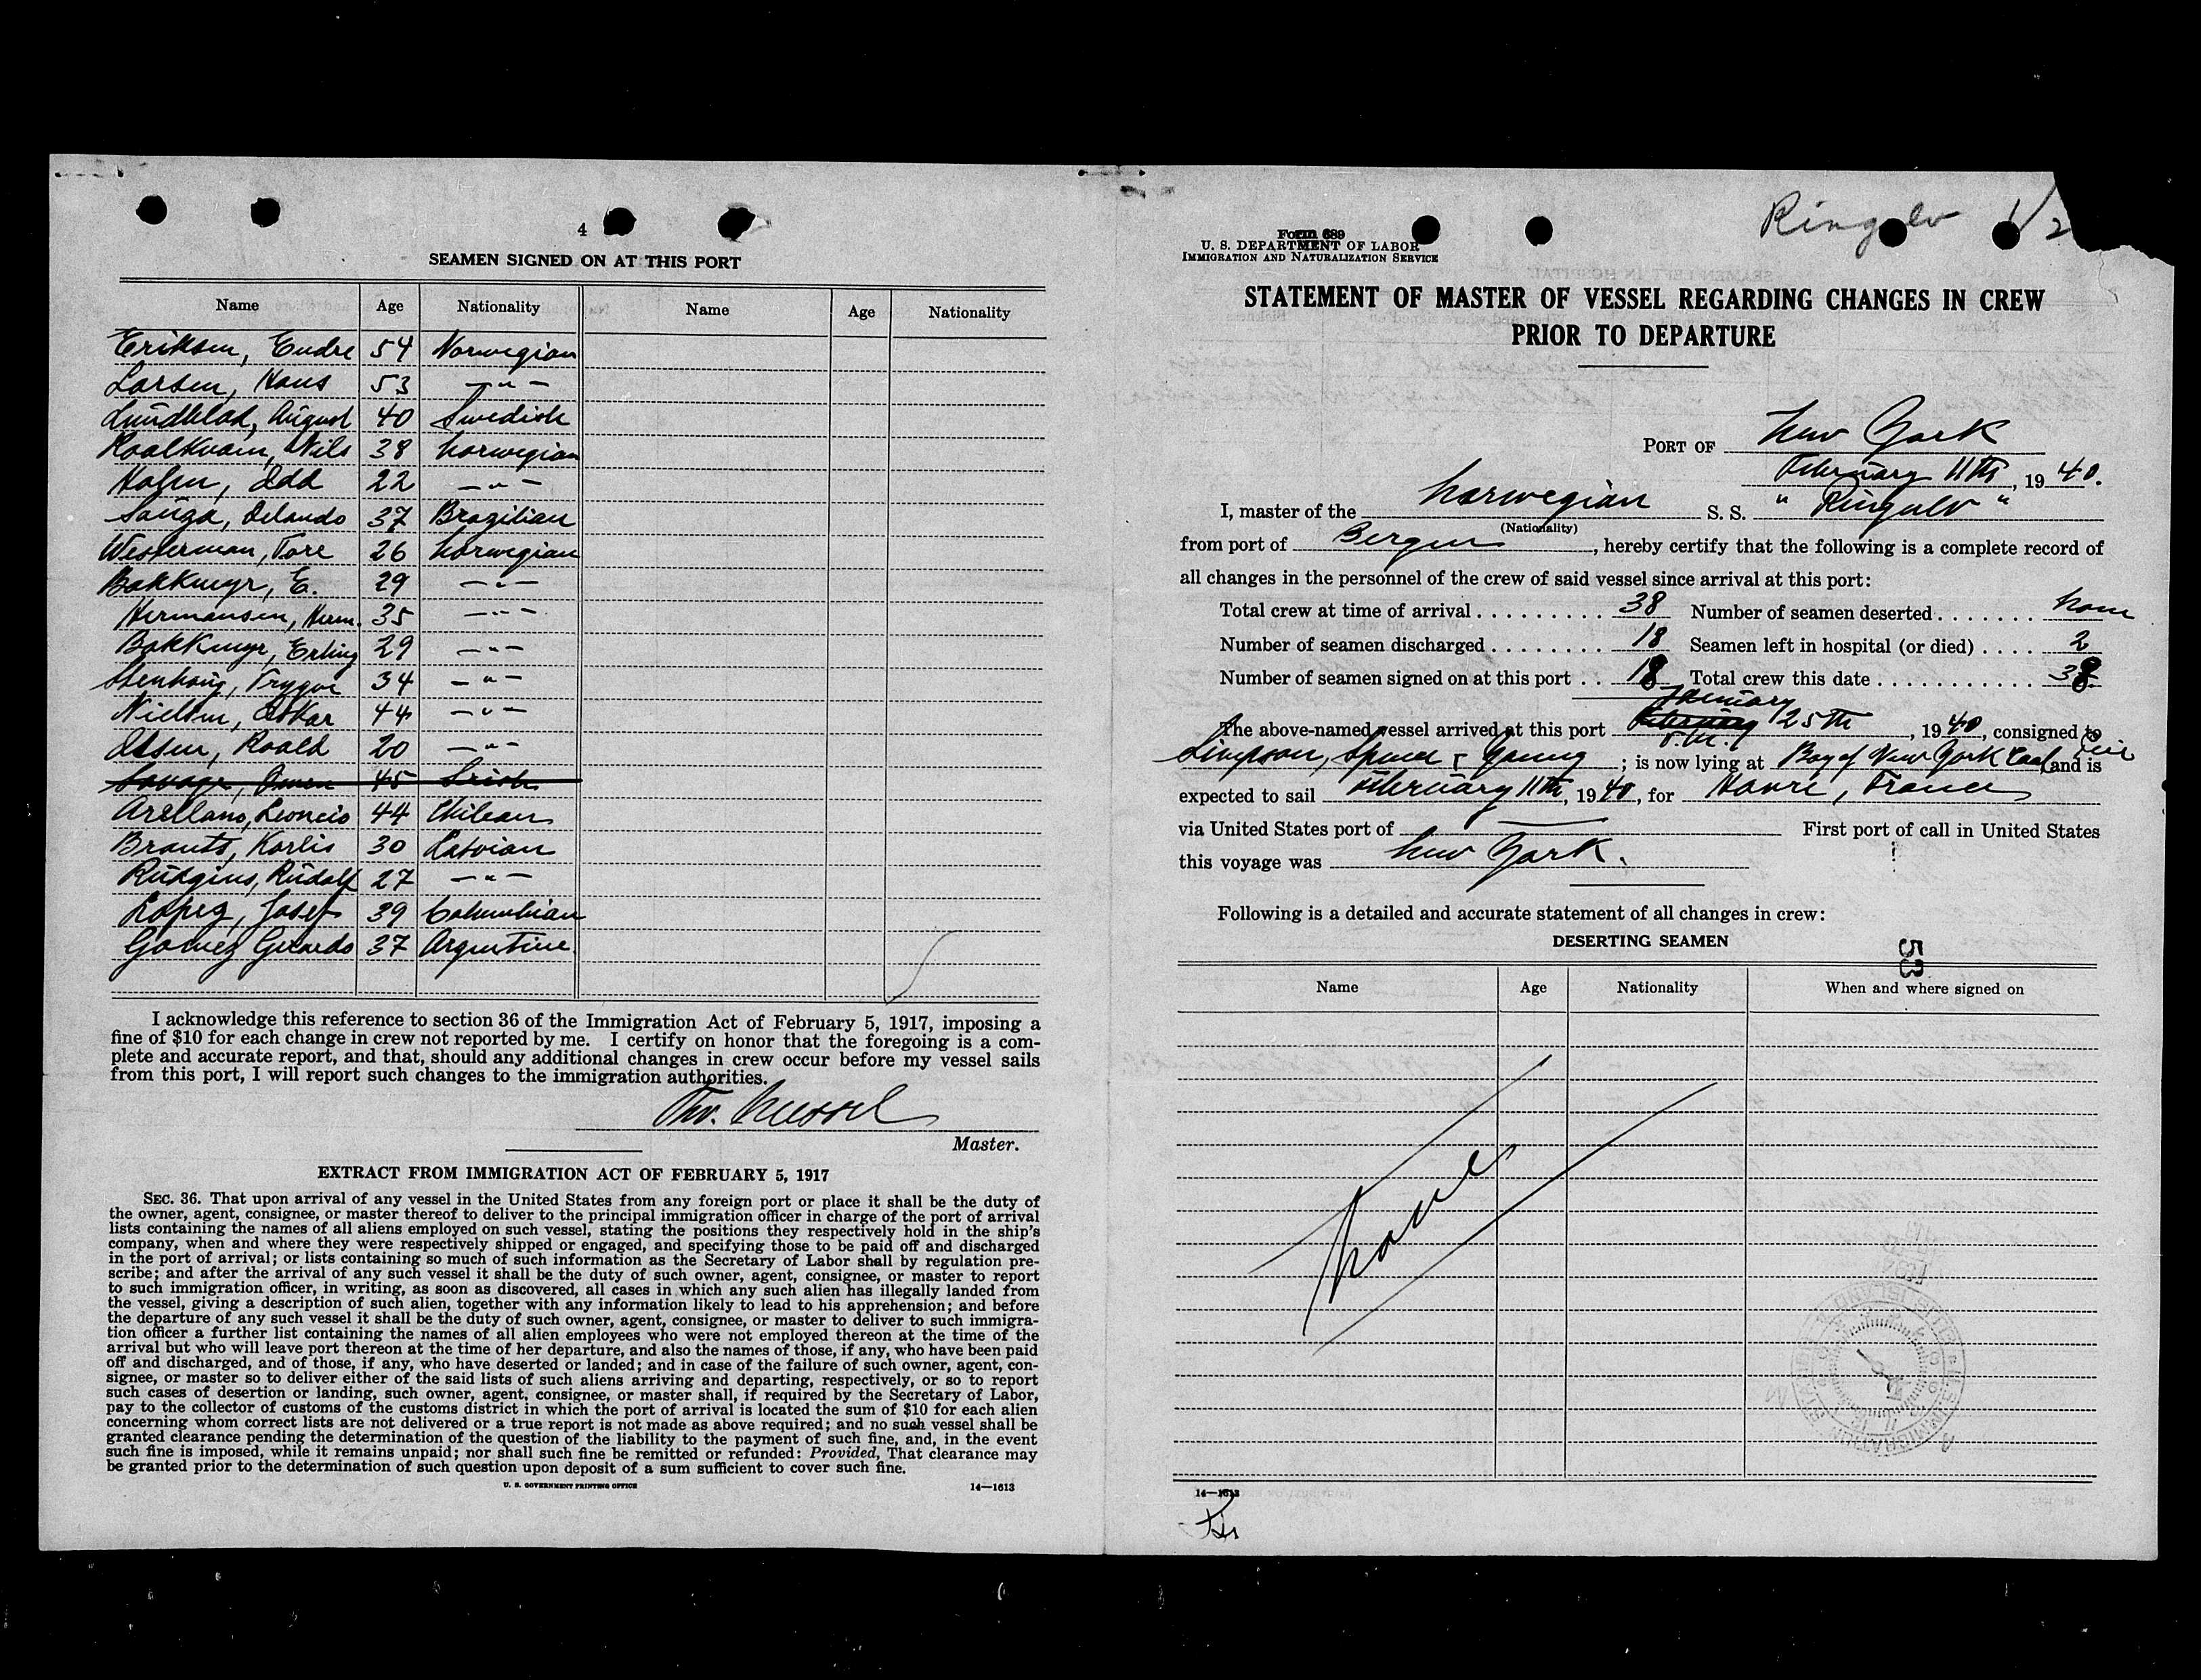 4
SEAMEN SIGNED ON AT THIS PORT
Name Age Nationality Name Age Nationality
Eriksen, Endre 54 Norwegian
Larsen, Hans 53 — " —
Lundblad, August 40 Swedish
Roalkvam, Nils 38 Norwegian
Holen, Odd 22 — " —
Souga, Orlando 37 Brazilian
Westerman, Tore 26 Norwegian
Bakkmyr, E. 29 — " —
Hermansen, Herm. 35 — " —
Bakkmyr, Erling 29 — " —
Stenhaug, Trygve 34 — " —
Nielsen, Oskar 44 — " —
Olsen, Roald 20 — " —
Savage, Owen 45 Irish
Arellano, Leoncio 44 Chilean
Brants, Karlis 30 Latvian
Rudgius, Rudolf 27 — " —
Lopez, Josef 39 Columbian
Gomez Gerardo 37 Argentine.
I acknowledge this reference to section 36 of the Immigration Act of February 5, 1917, imposing a
fine of $10 for each change in crew not reported by me. I certify on honor that the foregoing is a com-
plete and accurate report, and that, should any additional changes in crew occur before my vessel sails
from this port, I will report such changes to the immigration authorities.
Thv.
Master.
EXTRACT FROM IMMIGRATION ACT OF FEBRUARY 5, 1917
SEC. 36. That upon arrival of any vessel in the United States from any foreign port or place it shall be the duty of
the owner, agent, consignee, or master thereof to deliver to the principal immigration officer in charge of the port of arrival
lists containing the names of all aliens employed on such vessel, stating the positions they respectively hold in the ship's
company, when and where they were respectively shipped or engaged, and specifying those to be paid off and discharged
in the port of arrival; or lists containing so much of such information as the Secretary of Labor shall by regulation pre-
scribe; and after the arrival of any such vessel it shall be the duty of such owner, agent, consignee, or master to report
to such immigration officer, in writing, as soon as discovered, all cases in which any such alien has illegally landed from
the vessel, giving a description of such alien, together with any information likely to lead to his apprehension; and before
the departure of any such vessel it shall be the duty of such owner, agent, consignee, or master to deliver to such immigra-
tion officer a further list containing the names of all alien employees who were not employed thereon at the time of the
arrival but who will leave port thereon at the time of her departure, and also the names of those, if any, who have been paid
off and discharged, and of those, if any, who have deserted or landed; and in case of the failure of such owner, agent, con-
signee, or master so to deliver either of the said lists of such aliens arriving and departing, respectively, or so to report
such cases of desertion or landing, such owner, agent, consignee, or master shall, if required by the Secretary of Labor,
pay to the collector of customs of the customs district in which the port of arrival is located the sum of $10 for each alien
concerning whom correct lists are not delivered or a true report is not made as above required; and no such vessel shall be
granted clearance pending the determination of the question of the liability to the payment of such fine, and, in the event
such fine is imposed, while it remains unpaid; nor shall such fine be remitted or refunded: Provided, That clearance may
be granted prior to the determination of such question upon deposit of a sum sufficient to cover such fine.
U. S. GOVERNMENT PRINTING OFFICE 14—1613
Ringulv 1/2
Form 689
U. S. DEPARTMENT OF LABOR
IMMIGRATION AND NATURALIZATION SERVICE
STATEMENT OF MASTER OF VESSEL REGARDING CHANGES IN CREW
PRIOR TO DEPARTURE
PORT OF New York
February 11th, 1940.
I, master of the Norwegian S. S. "Ringulv"
(Nationality)
from port of Bergen, hereby certify that the following is a complete record of
all changes in the personnel of the crew of said vessel since arrival at this port:
Total crew at time of arrival . . . . . . . . . 38 Number of seamen deserted . . . . . . . None
Number of seamen discharged . . . . . . . . 18 Seamen left in hospital (or died) . . . . 2
Number of seamen signed on at this port . . 18 Total crew this date . . . . . . . . . . . . 38.
January
The above-named vessel arrived at this port February 25th, 1940, consigned to
Simpson, Spence & Young; is now lying at Bay of New York Coal Pier and is
expected to sail February 11th, 1940, for Havre, France
via United States port of — First port of call in United States
this voyage was New York.
Following is a detailed and accurate statement of all changes in crew:
DESERTING SEAMEN
53
Name Age Nationality When and where signed on
None
14—1613